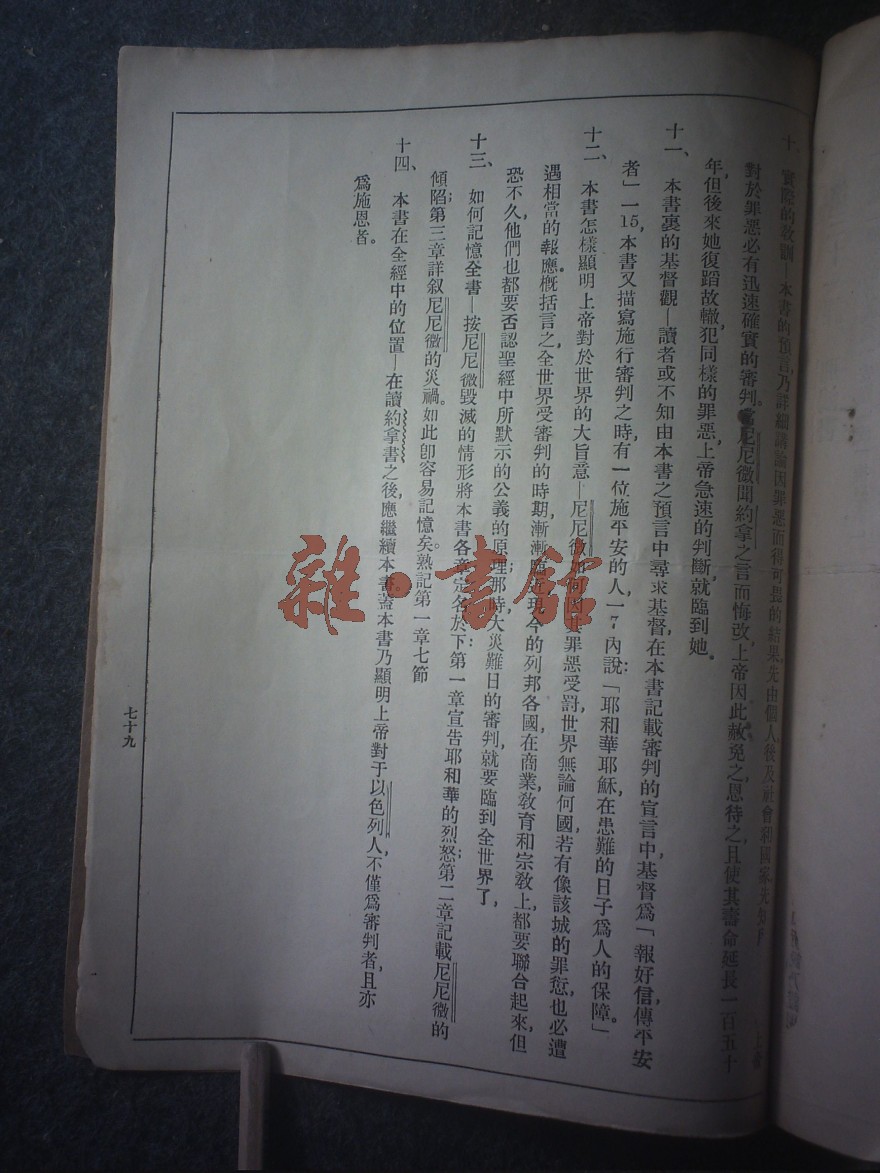 十、實際的教訓—本書的預言,乃詳細講論因罪惡而得可畏的結果,先由個人後及社會和國家,
對於罪惡必有迅速確實的審判。尼尼微聞約拿之言而悔改,上帝因此赦免之恩待之,且使其壽命延長一百五十
年,但後來她復蹈故轍犯同樣的罪惡,上帝急速的判斷就臨到她。
十一、本書裏的基督觀—讀者或不知由本書之預言中尋求基督,在本書記載審判的宣言中,基督爲「報好信傳平安
者」一15,本書又描寫施行審判之時,有一位施平安的人,一7內說:「耶和華耶穌,在患難的日子爲人的保障。」
十二、本書怎樣顯明上帝對於世界的大旨意—尼尼微如何因其罪惡受罰,世界無論何國,若有像該城的罪愆,也必遭
遇相當的報應。槪括言之,全世界受審判的時期,漸漸臨近,現今的列邦各國,在商業,敎育和宗敎上,都要聯合起來,但
恐不久,他們也都要否認聖經中所默示的公義的原理;那時,大災難日的審判,就要臨到全世界了,
十三、如何記憶全書—按尼尼微毀滅的情形,將本書各章定名於下:第一章宣告耶和華的烈怒;第二章記載尼尼微的
傾陷;第三章詳叙尼尼微的災禍。如此卽容易記憶矣。熟記第一章七節
十四、本書在全經中的位置—在讀約拿書之後,應繼續本書。蓋本書乃顯明上帝對于以色列人,不僅爲審判者,且亦
爲施恩者。
七十九
雜·書館